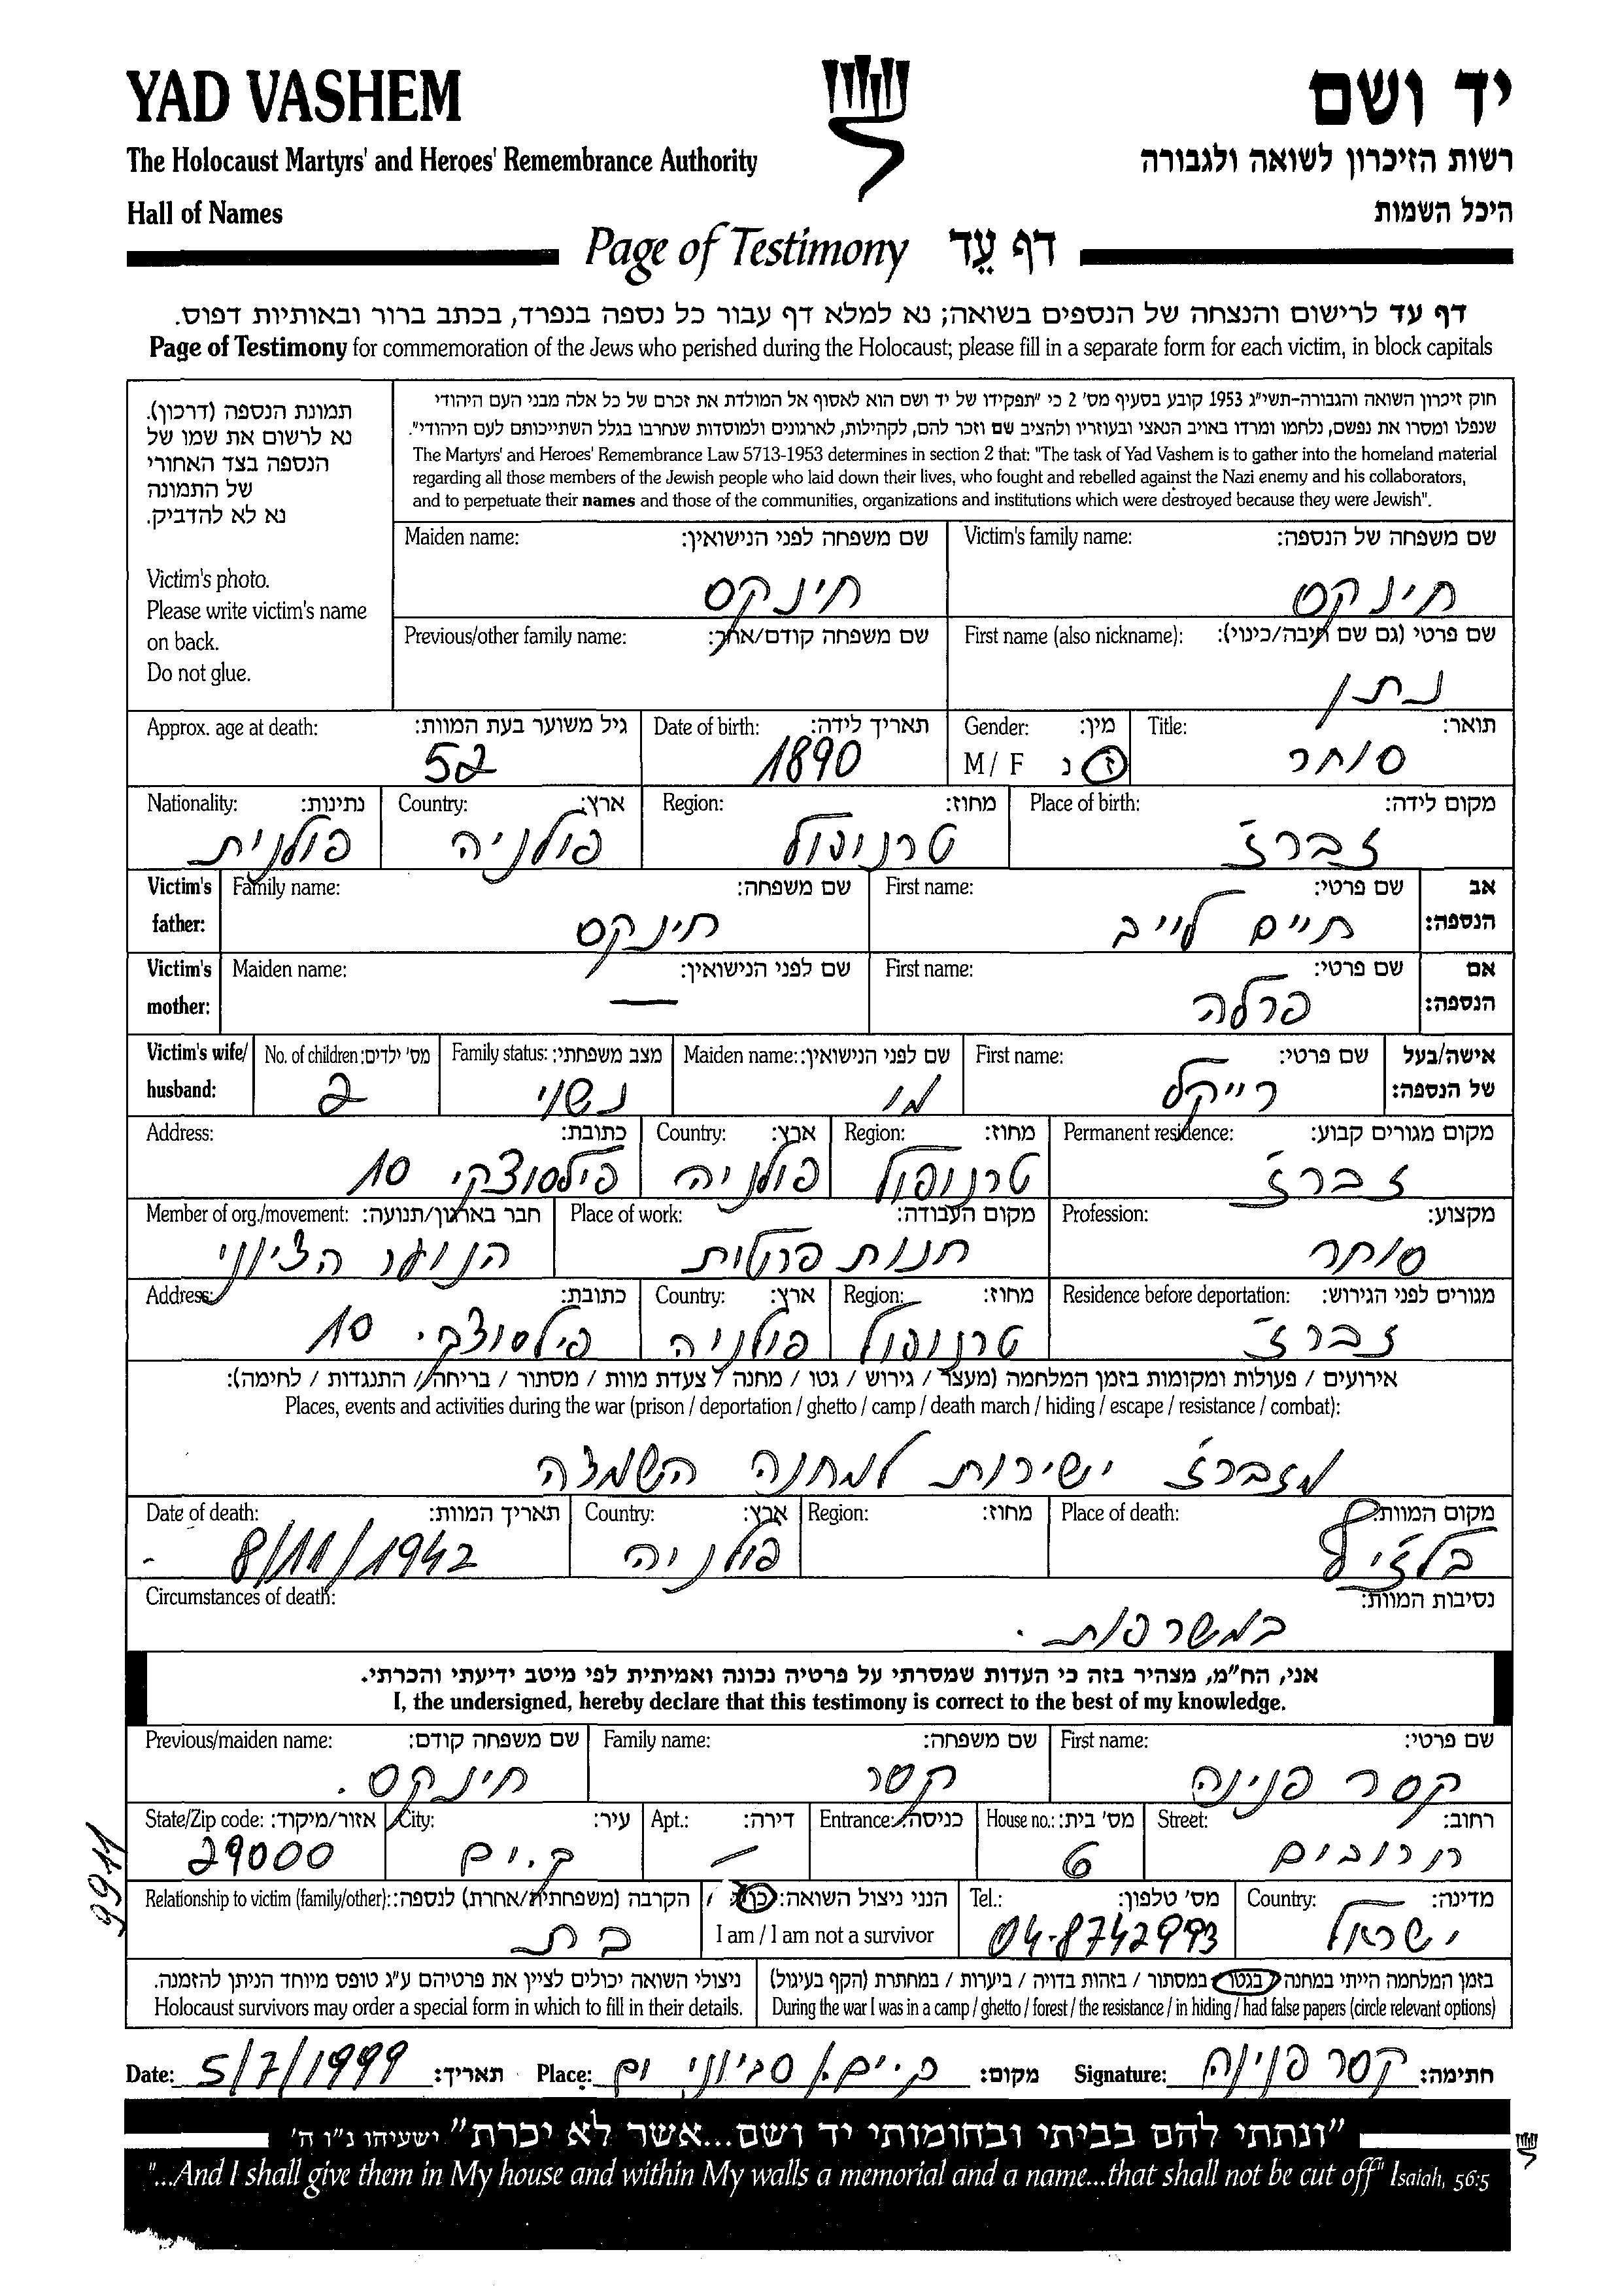 YAD VASHEM
יד ושם
The Holocaust Martyrs' and Heroes' Remembrance Authority
רשות הזיכרון לשואה ולגבורה
Hall of Names
היכל השמות
Page of Testimony דף עֵד
דף עד לרישום והנצחה של הנספים בשואה; נא למלא דף עבור כל נספה בנפרד, בכתב ברור ובאותיות דפוס.
Page of Testimony for commemoration of the Jews who perished during the Holocaust; please fill in a separate form for each victim, in block capitals
תמונת הנספה (דרכון).
נא לרשום את שמו של
הנספה בצד האחורי
של התמונה
נא לא להדביק.
Victim's photo.
Please write victim's name
on back.
Do not glue.
חוק זיכרון השואה והגבורה-תשי"ג 1953 קובע בסעיף מס' 2 כי "תפקידו של יד ושם הוא לאסוף אל המולדת את זכרם של כל אלה מבני העם היהודי
שנפלו ומסרו את נפשם, נלחמו ומרדו באויב הנאצי ובעוזריו ולהציב שם וזכר להם, לקהילות, לארגונים ולמוסדות שנחרבו בגלל השתייכותם לעם היהודי".
The Martyrs' and Heroes' Remembrance Law 5713-1953 determines in section 2 that: "The task of Yad Vashem is to gather into the homeland material
regarding all those members of the Jewish people who laid down their lives, who fought and rebelled against the Nazi enemy and his collaborators,
and to perpetuate their names and those of the communities, organizations and institutions which were destroyed because they were Jewish".
Victim's family name: שם משפחה של הנספה: Maiden name: שם משפחה לפני הנישואין:
חינקס חינקס
First name (also nickname): שם פרטי (גם שם חיבה/כינוי): Previous/other family name: שם משפחה קודם/אחר:
נתן
Title: תואר: Gender: מין: Date of birth: תאריך לידה: Approx. age at death: גיל משוער בעת המוות:
סוחר M / F ז נ 1890 52
Place of birth: מקום לידה: Region: מחוז: Country: ארץ: Nationality: נתינות:
זברז' טרנופול פולניה פולנית
אב הנספה: שם פרטי: First name: שם משפחה: Family name: Victim's father:
חיים לייב חינקס
אם הנספה: שם פרטי: First name: שם לפני הנישואין: Maiden name: Victim's mother:
פרלה —
אישה/בעל של הנספה: שם פרטי: First name: שם לפני הנישואין: Maiden name: מצב משפחתי: Family status: מס' ילדים: No. of children: Victim's wife/ husband:
רייקל נשוי 2
Permanent residence: מקום מגורים קבוע: Region: מחוז: Country: ארץ: Address: כתובת:
זברז' טרנופול פולניה פילסוצקי 10
Profession: מקצוע: Place of work: מקום העבודה: Member of org./movement: חבר בארגון/תנועה:
סוחר חנות פרטית הנוער הציוני
Residence before deportation: מגורים לפני הגירוש: Region: מחוז: Country: ארץ: Address: כתובת:
זברז' טרנופול פולניה פילסוצקי 10
אירועים / פעולות ומקומות בזמן המלחמה (מעצר / גירוש / גטו / מחנה / צעדת מוות / מסתור / בריחה / התנגדות / לחימה):
Places, events and activities during the war (prison / deportation / ghetto / camp / death march / hiding / escape / resistance / combat):
מזברז' ישירות למחנה השמדה
Place of death: מקום המוות: Region: מחוז: Country: ארץ: Date of death: תאריך המוות:
פולניה 8/11/1942
Circumstances of death: נסיבות המוות:
במשרפות.
אני, הח"מ, מצהיר בזה כי העדות שמסרתי על פרטיה נכונה ואמיתית לפי מיטב ידיעתי והכרתי.
I, the undersigned, hereby declare that this testimony is correct to the best of my knowledge.
First name: שם פרטי: Family name: שם משפחה: Previous/maiden name: שם משפחה קודם:
קסר פנינה קסר חינקס.
Street: רחוב: House no.: מס' בית: Entrance: כניסה: Apt.: דירה: City: עיר: State/Zip code: אזור/מיקוד:
חרובים 6 – ק.ים 29000
9911
Country: מדינה: Tel.: מס' טלפון: הנני ניצול השואה: כן / I am / I am not a survivor Relationship to victim (family/other): הקרבה (משפחתית/אחרת) לנספה:
ישראל 04-8742993 בת
בזמן המלחמה הייתי במחנה / בגטו / במסתור / בזהות בדויה / ביערות / במחתרת (הקף בעיגול)
During the war I was in a camp / ghetto / forest / the resistance / in hiding / had false papers (circle relevant options)
ניצולי השואה יכולים לציין את פרטיהם ע"ג טופס מיוחד הניתן להזמנה.
Holocaust survivors may order a special form in which to fill in their details.
Date: 5/7/1999 תאריך: Place: ק.ים, סביוני ים מקום: Signature: קסר פנינה חתימה:
"ונתתי להם בביתי ובחומותי יד ושם...אשר לא יכרת" ישעיהו נ"ו ה'
"...And I shall give them in My house and within My walls a memorial and a name...that shall not be cut off" Isaiah, 56:5